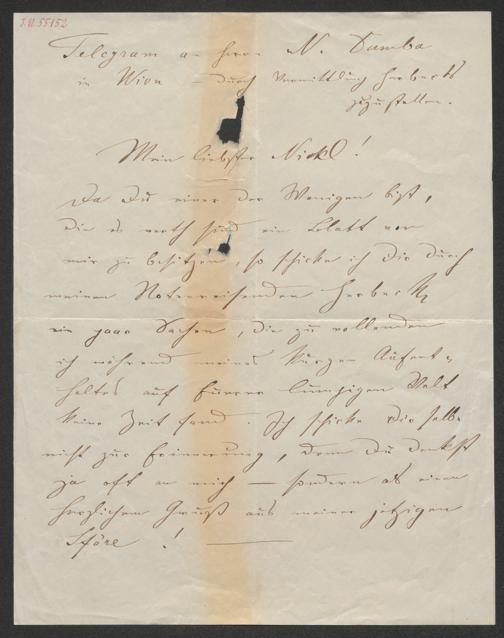 I.N. 55152
Telegram an Herrn N. Dumba
in Wien – durch Vermittlung Herbecks
zuzustellen.
Mein liebster Nickl!
Da Du einer der Wenigen bist,
die es werth sind ein Blatt von
mir zu besitzen, so schicke ich Dir durch
meinen Notenreisenden Herbeck
ein paar Sachen, die zu vollenden
ich während meines kurzen Aufent-
haltes auf Eurer lumpigen Welt
keine Zeit fand. Ich schicke Dir selbe
nicht zur Erinnerung, denn Du denkst
ja oft an mich — sondern als einen
herzlichen Gruß aus meiner jetzigen
Sfäre!